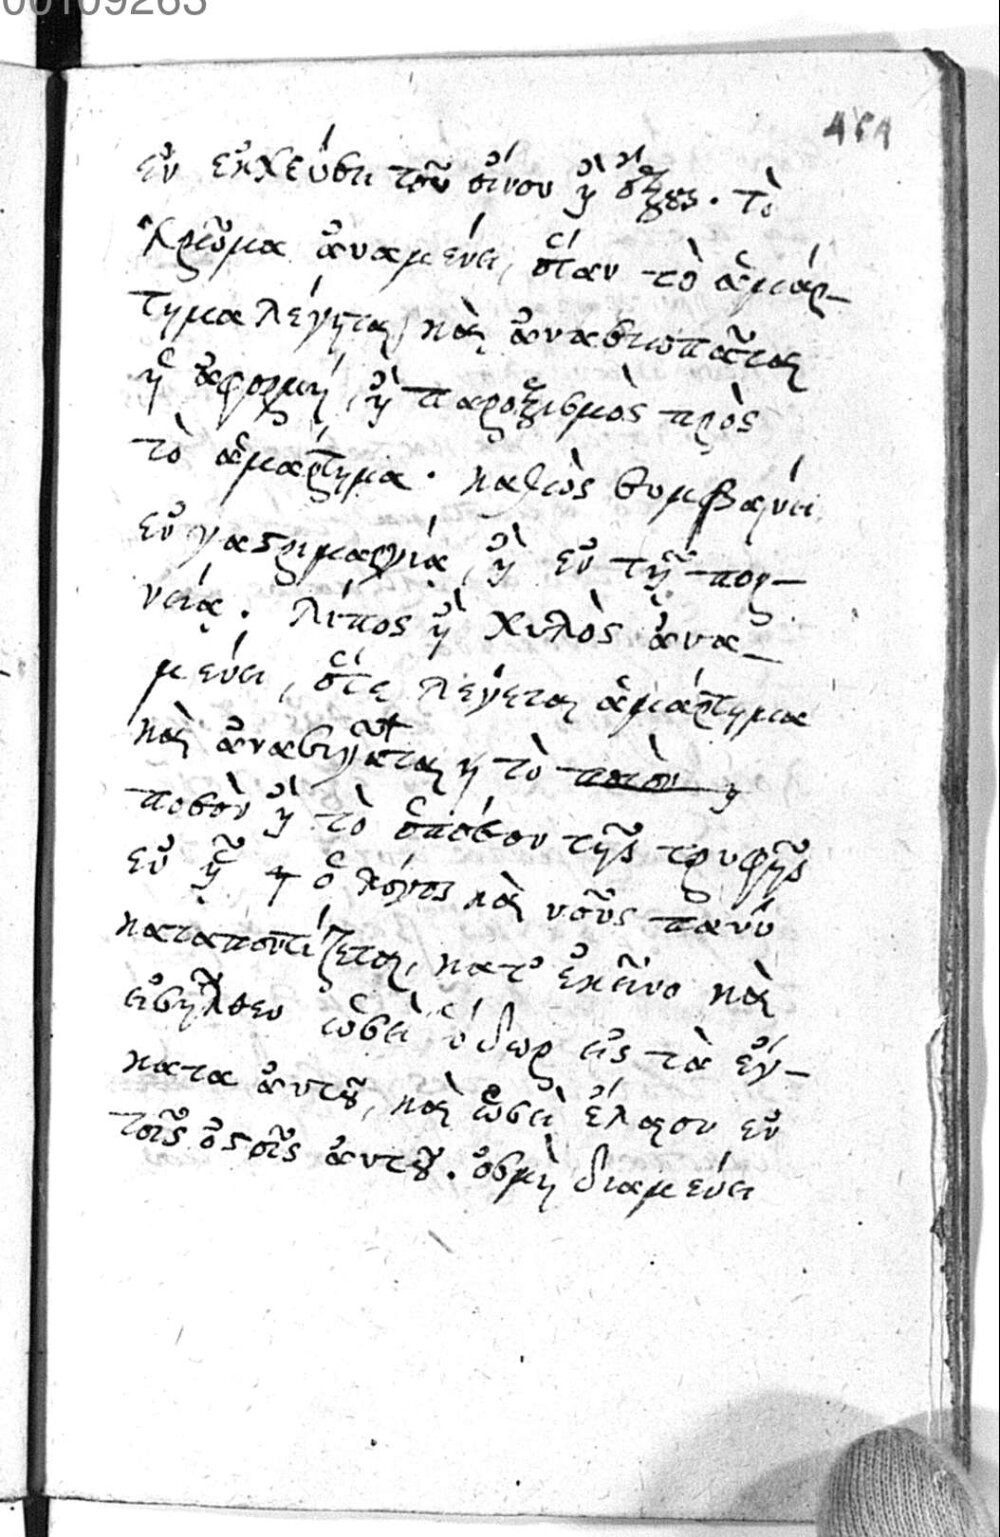 00109263
464
ἐν ἐκχεύσει τοῦ οἴνου ἢ ὄξους. τὸ
χρῶμα ἀναμένει, ὅταν τὸ ἁμάρ-
τημα λέγηται, καὶ ἀνασιωπᾶται
ἡ ἀφορμὴ, ἢ παροξισμὸς πρὸς
τὸ ἁμάρτημα. καθὼς συμβαίνει
ἐν γαστριμαργίᾳ, ἢ ἐν τῇ πορ-
νείᾳ. λίπος ἢ χυλὸς ἀνα-
μένει, ὅτε λέγεται ἁμάρτημα
καὶ ἀνασιγᾶται τὸ ποιὸν ἢ
ποσὸν ἢ τὸ ὁπόσον τῆς τρυφῆς
ἐν ᾗ ὁ λόγος καὶ νοῦς πάνυ
καταποντίζεται, κατ' ἐκεῖνο καὶ
εἰσῆλθεν ὡσεὶ ὕδωρ εἰς τὰ ἔγ-
κατα αὐτοῦ, καὶ ὡσεὶ ἔλαιον ἐν
τοῖς ὀστοῖς αὐτοῦ. ὀσμὴ διαμένει